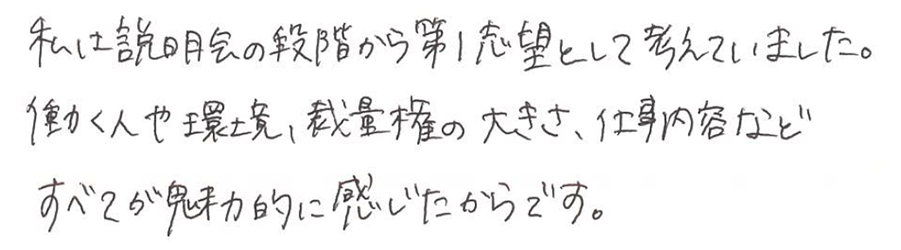 私は説明会の段階から第1志望として考えていました。
働く人や環境、裁量権の大きさ、仕事内容など
すべてが魅力的に感じたからです。